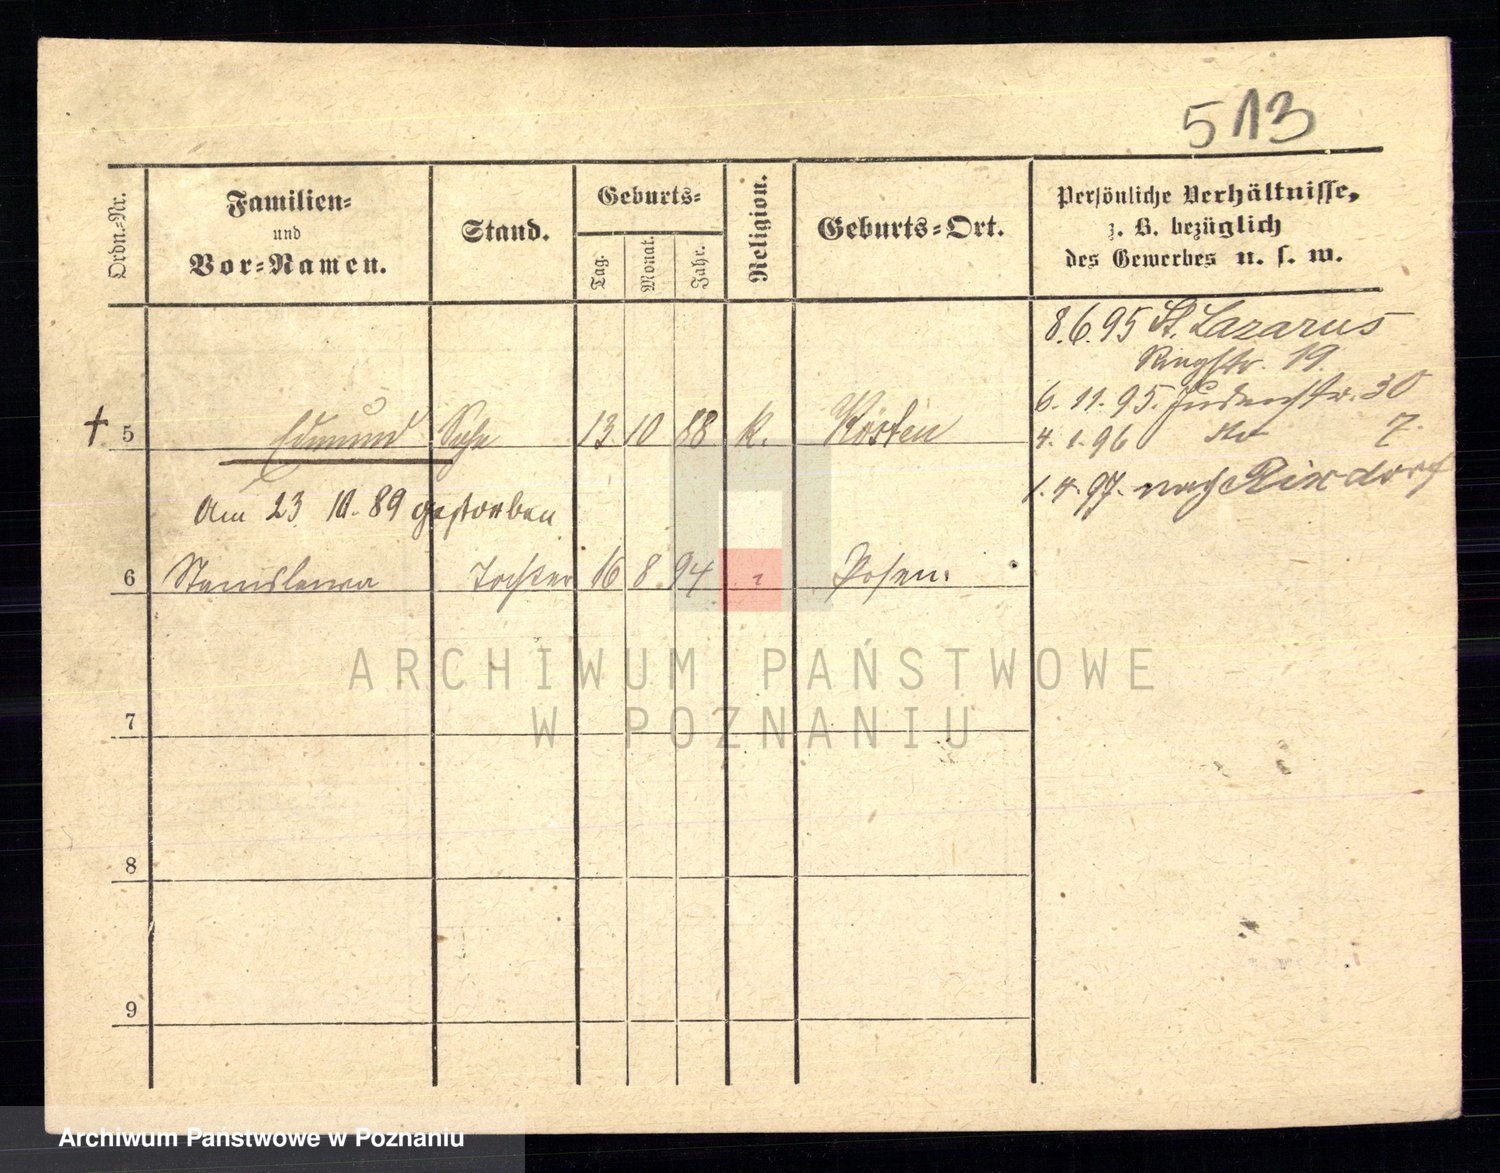 513
Ordn.-Nr.
Familien-
und
Vor-Namen.
Stand.
Geburts-
Tag.
Monat.
Jahr.
Religion.
Geburts-Ort.
Persönliche Verhältnisse,
z. B. bezüglich
des Gewerbes u. s. w.
8.6.95 St. Lazarus
Ringstr. 19.
6.11.95. Judenstr. 30
4.1.96 7.
1.4.97. nach Rixdorf
† 5 Edmund 13 10 88 k. Kosten
Am 23 10. 89 gestorben
6 Stanislawa Tochter 16 8 94 Posen.
7
8
9
ARCHIWUM PAŃSTWOWE
W POZNANIU
Archiwum Państwowe w Poznaniu